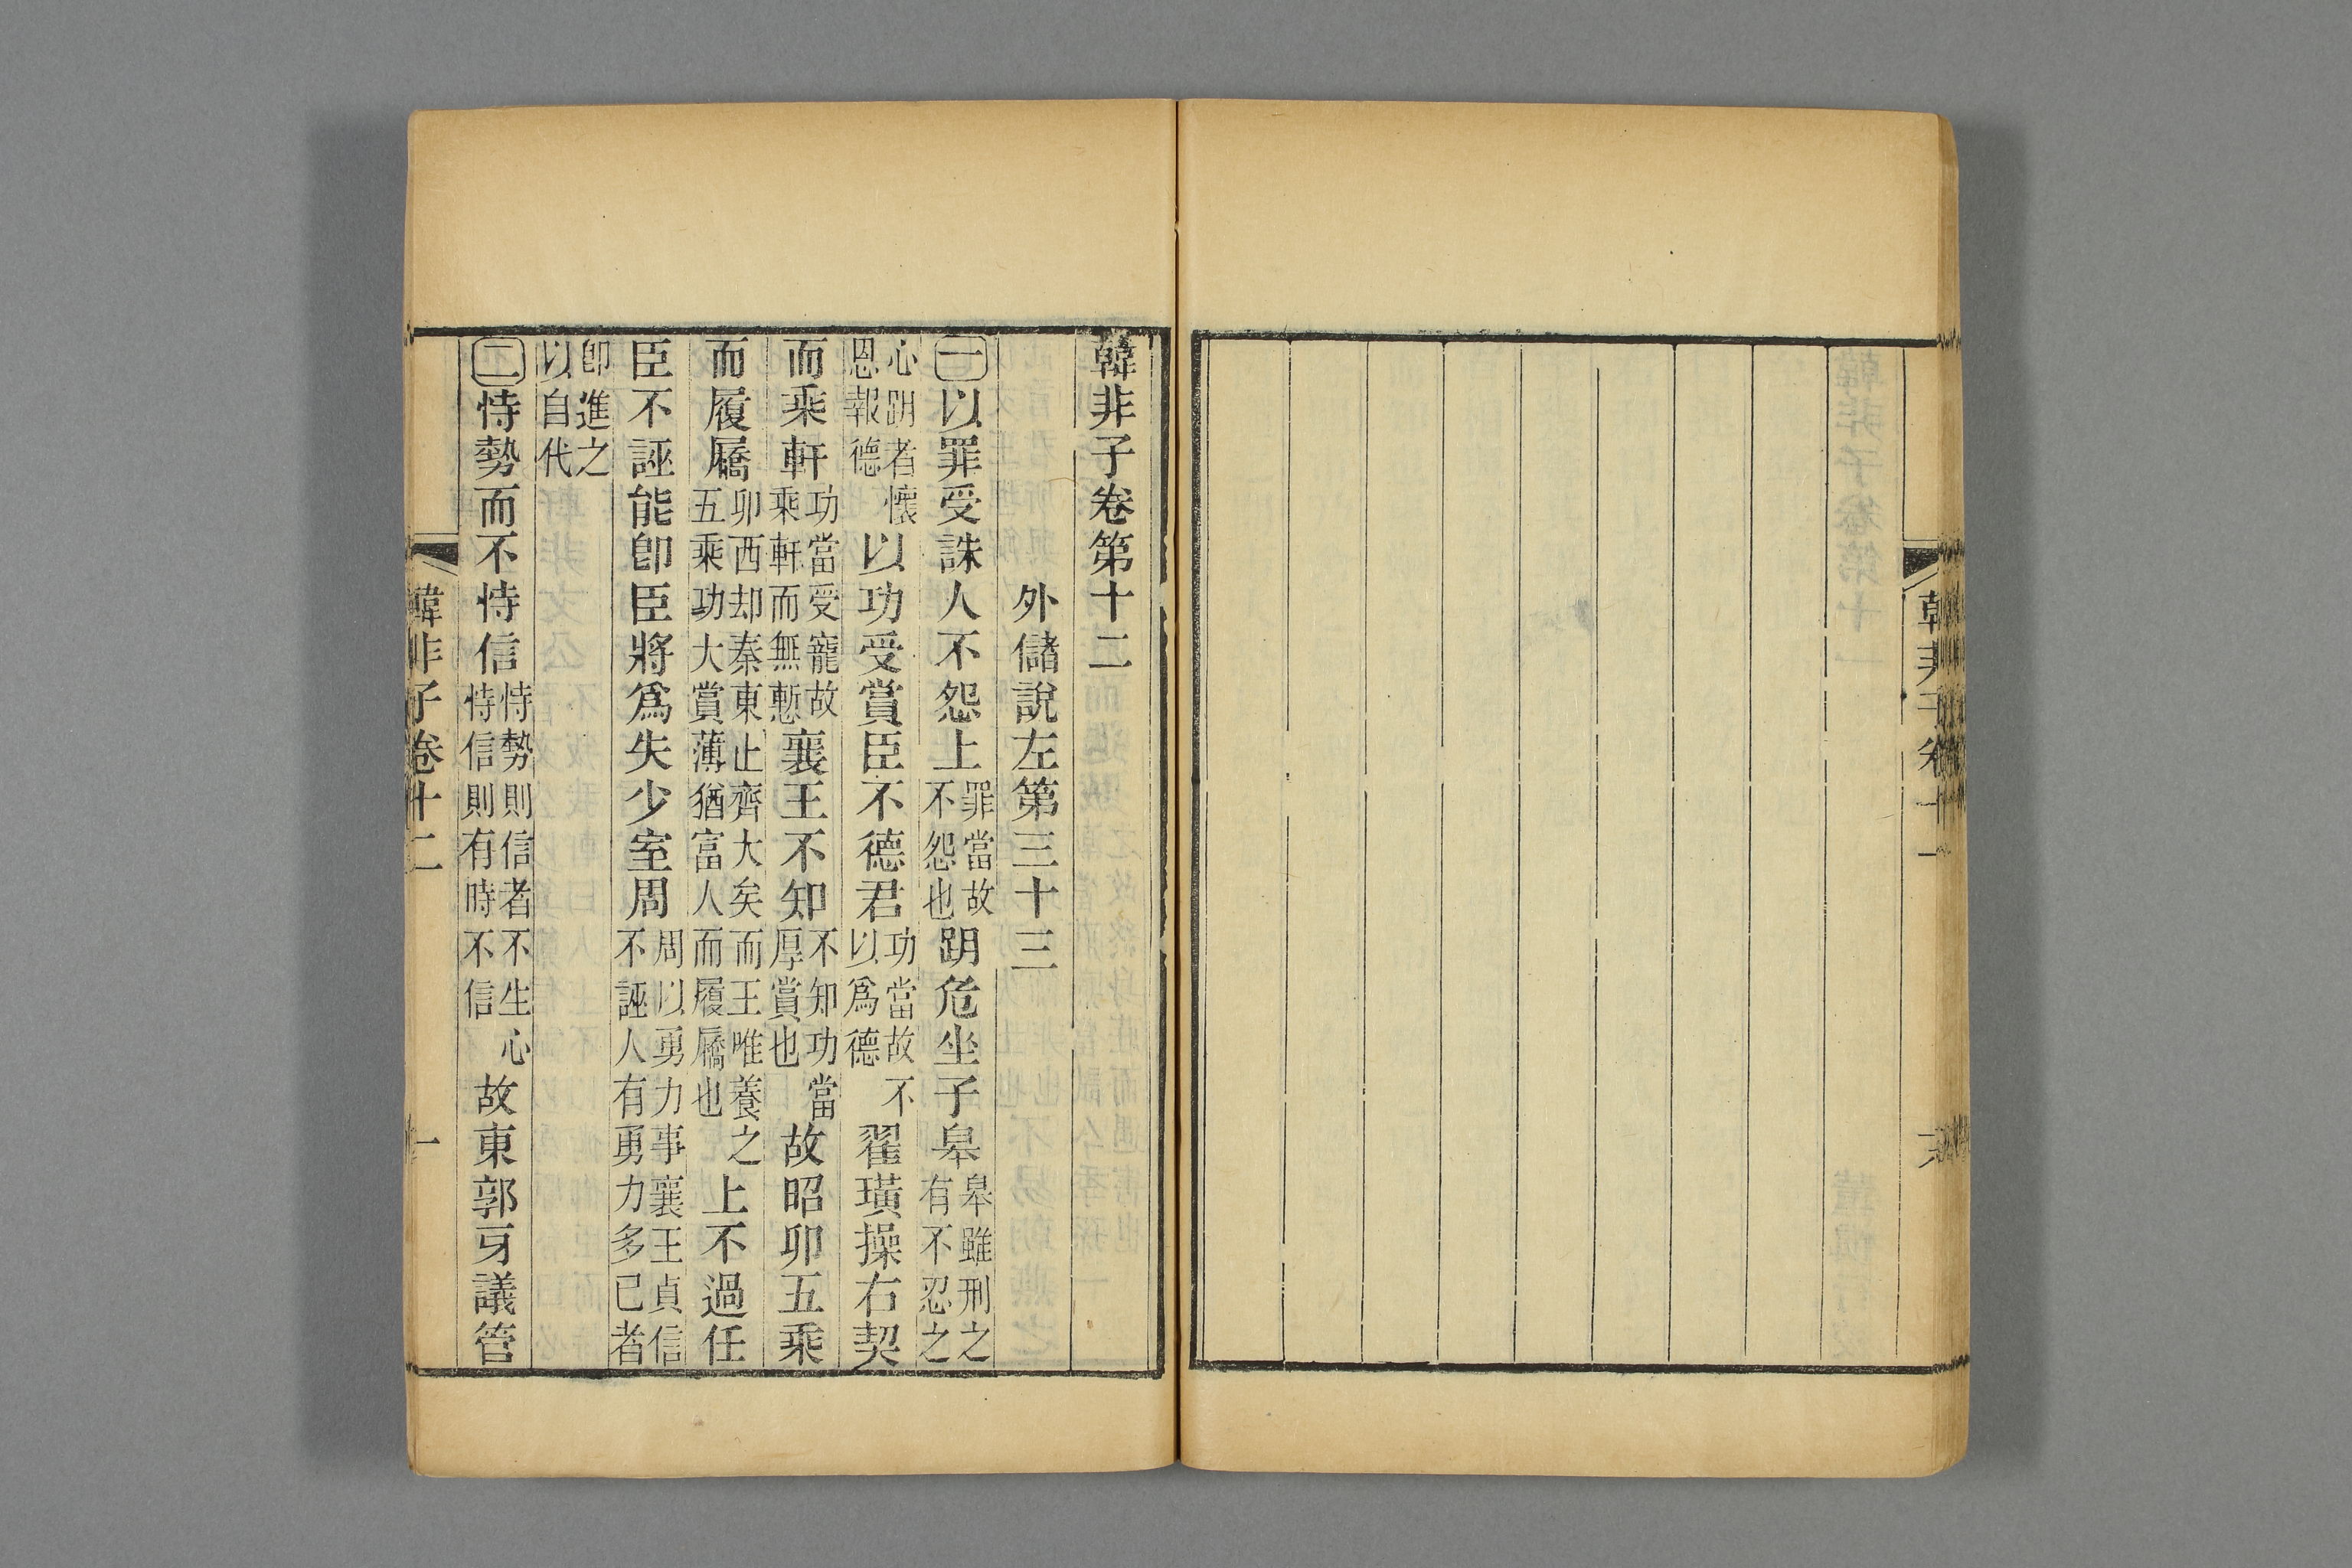 韓非子卷十一
韓非子卷第十二
外儲說左第三十三
一以罪受誅人不怨上罪當故不怨也跀危坐子皋皋雖刑之有不忍之
心跀者懷恩報德以功受賞臣不德君功當故不以爲德翟璜操右契
而乘軒功當受寵故乘軒而無慙襄王不知不知功當厚賞也故昭卯五乘
而履屩卯西却秦東止齊大矣而王唯養之五乘功大賞薄猶富人而履屩也上不過任
臣不誣能卽臣將爲失少室周周以勇力事襄王貞信不誣人有勇力多已者
卽進之以自代
二恃勢而不恃信恃勢則信者不生心恃信則有時不信故東郭牙議管
韓非子卷十二 一